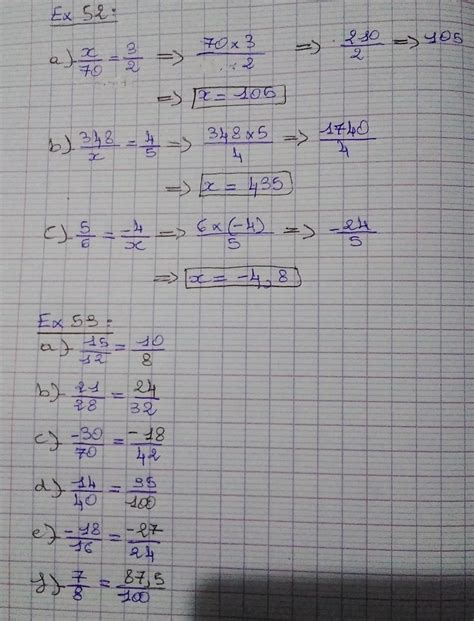 Ex 52:
a) x/70 = 3/2 => 70 x 3/2 => 210/2 => 105
=> x = 105
b) 348/x = 4/5 => 348 x 5/4 => 1740/4
=> x = 435
c) 5/6 = -4/x => 6 x (-4)/5 => -24/5
=> x = -4,8
Ex 53:
a) 15/12 = 10/8
b) 21/28 = 24/32
c) -30/70 = -18/42
d) 14/40 = 35/100
e) -18/16 = -27/24
f) 7/8 = 87,5/100